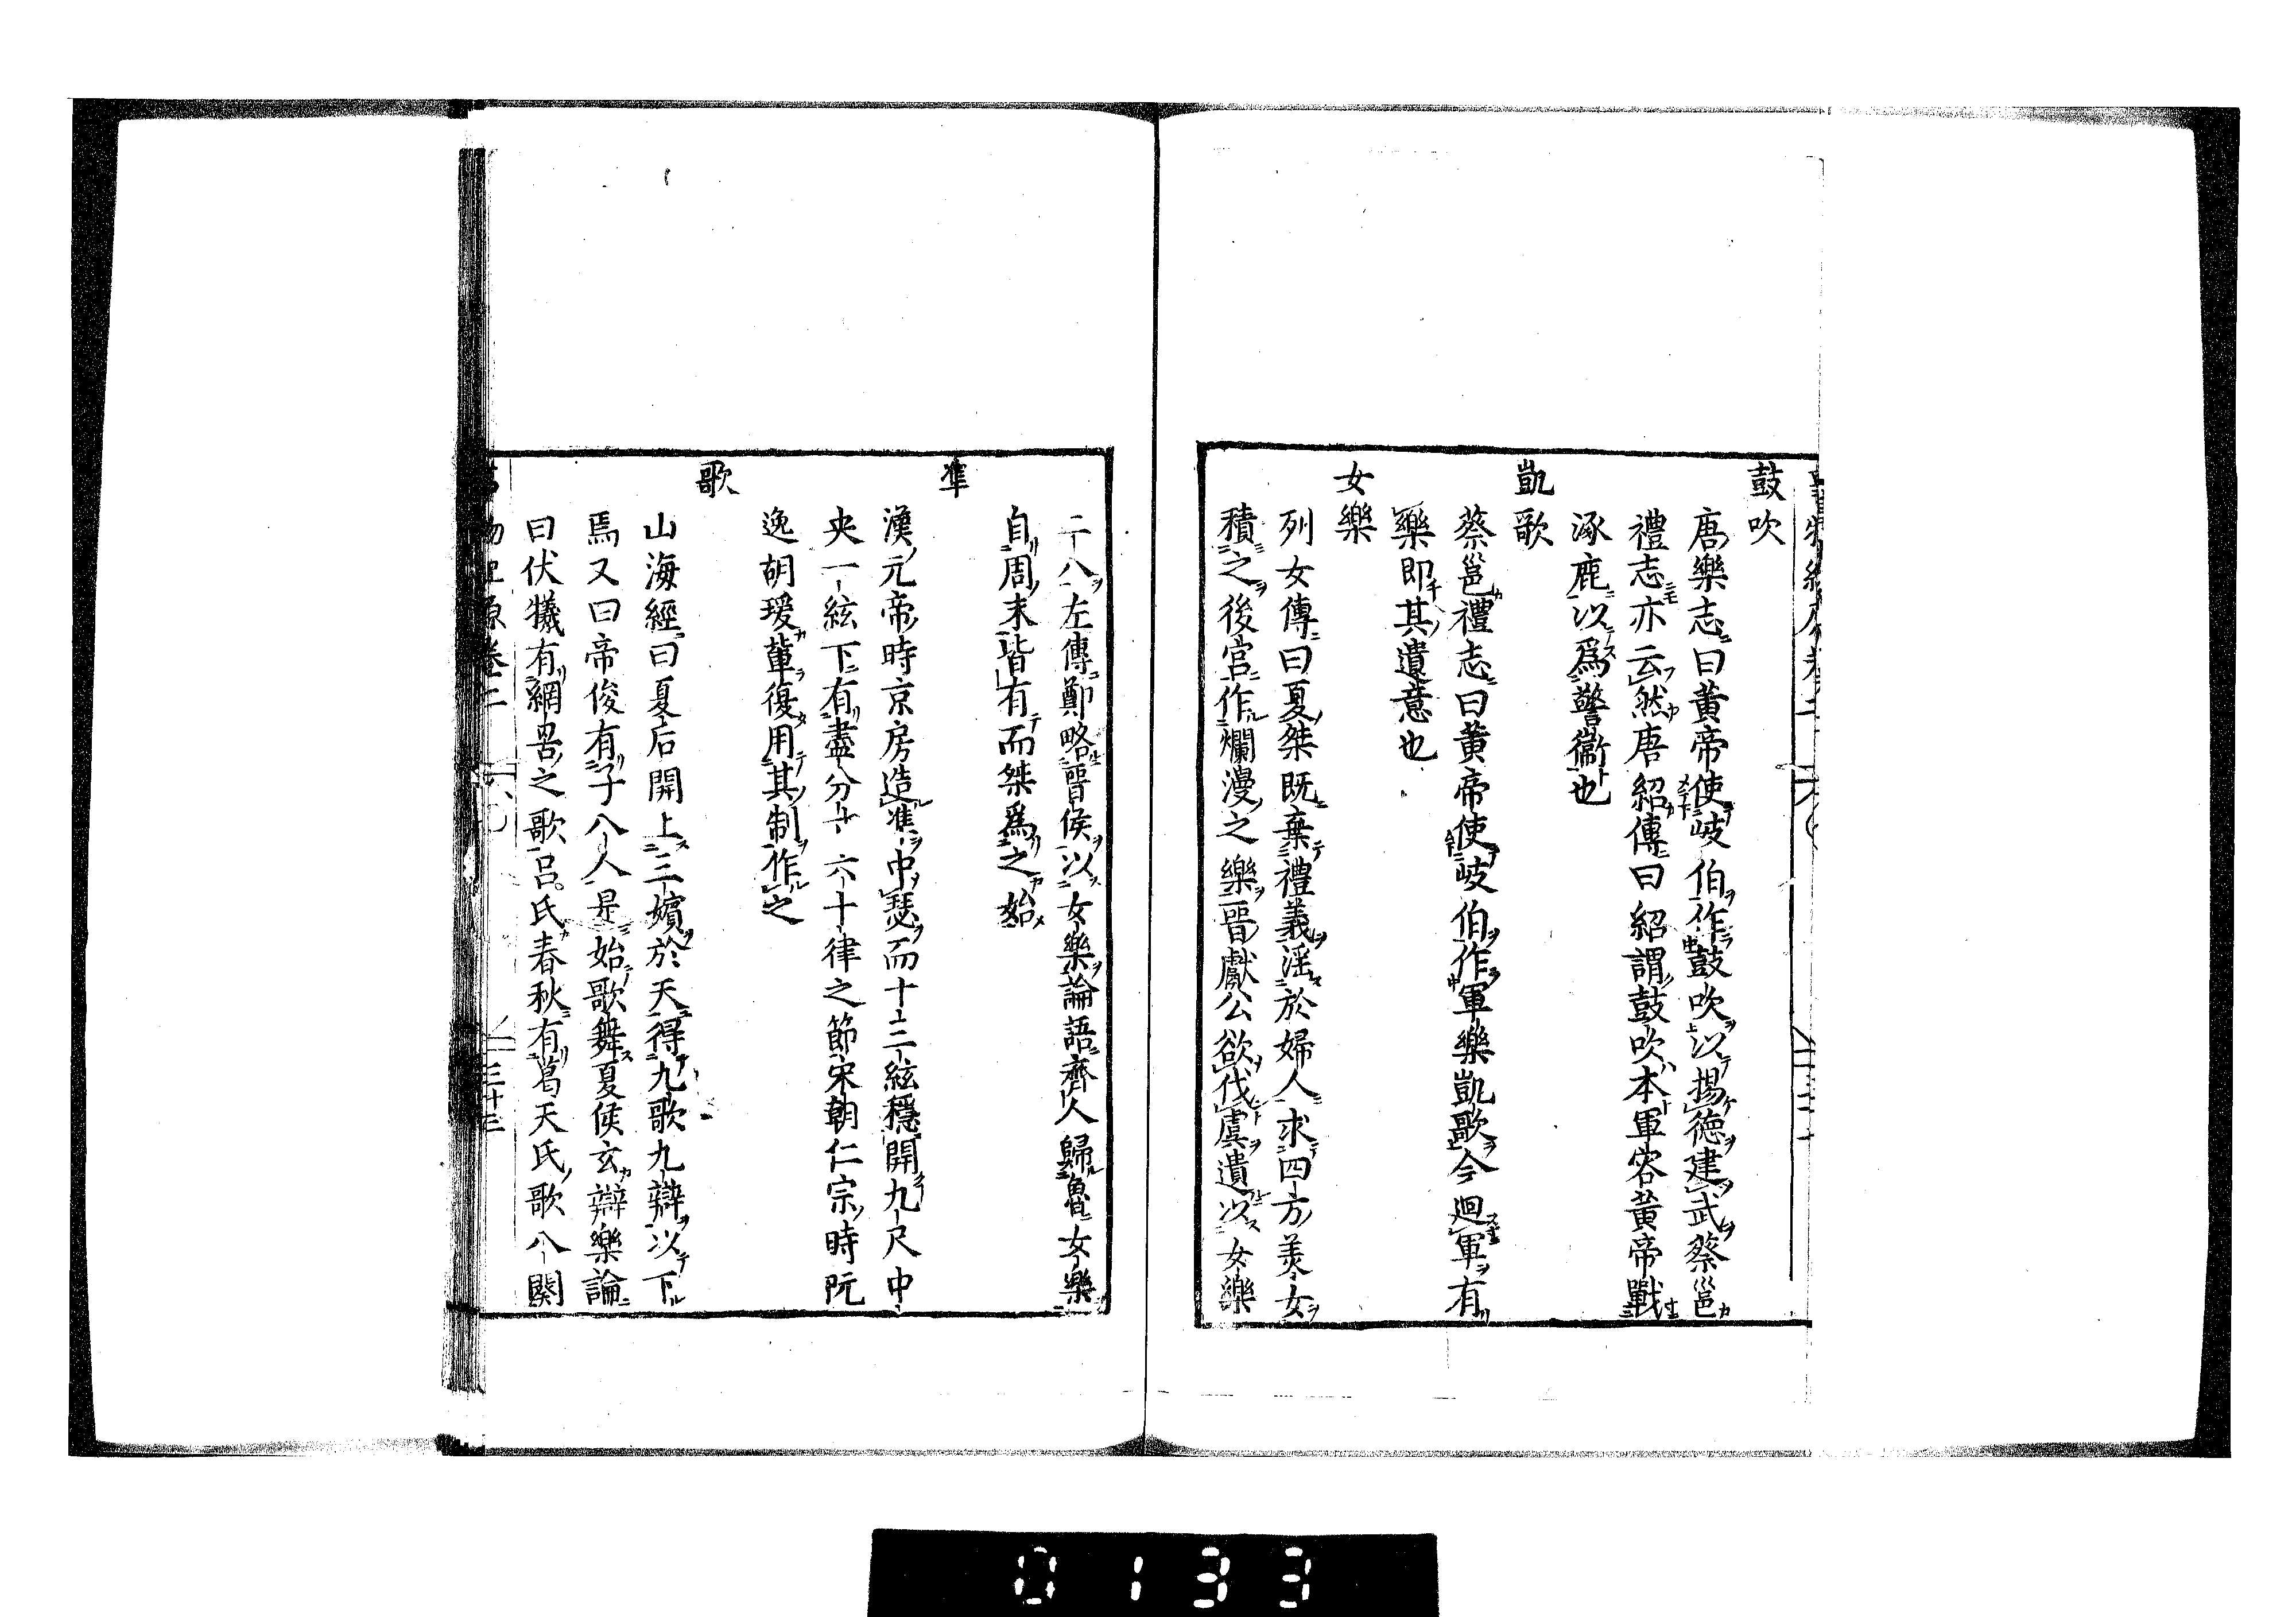 鼓吹
唐樂志曰黃帝使岐伯作鼓吹以揚德建武蔡邕
禮志亦云然唐紹傳曰紹謂鼓吹本軍容黃帝戰
涿鹿以爲警衞也
凱歌
蔡邕禮志曰黃帝使岐伯作軍樂凱歌今廻軍有
樂即其遺意也
女樂
列女傳曰夏桀既棄禮義淫於婦人求四方美女
積之後宮作爛漫之樂晉獻公欲伐虞遺以女樂
二八左傳鄭略晋侯以女樂論語齊人歸魯女樂
自周末皆有而桀爲之始
準
漢元帝時京房造準中瑟而十三絃穩開九尺中
央一絃下有盡分十六十律之節宋朝仁宗時阮
逸胡瑗輩復用其制作之
歌
山海經曰夏后開上三嬪於天得九歌九辯以下
焉又曰帝俊有子八人是始歌舞夏侯玄辯樂論
曰伏犠有網罟之歌呂氏春秋有葛天氏歌八闋
物 原卷二 三十三
0133